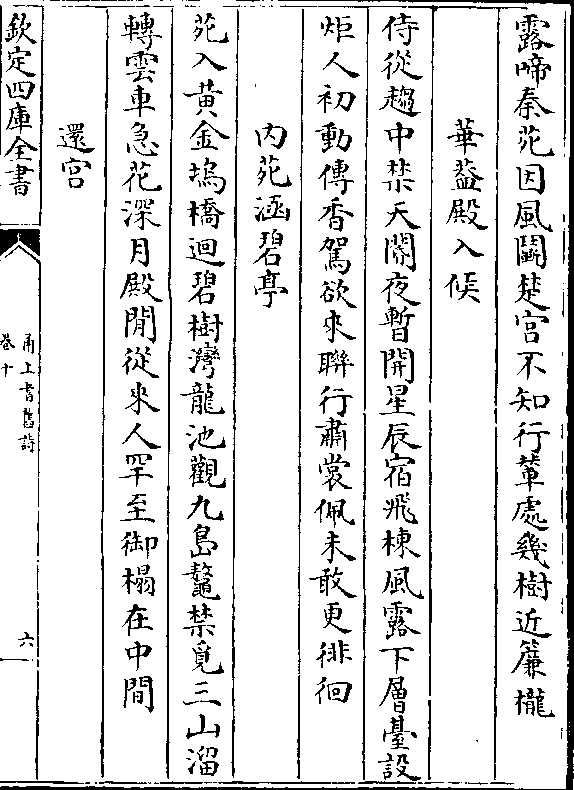 露啼秦苑因風鬭楚宫不知行輦處幾樹近簾櫳
華葢殿入候
侍從趨中禁天關夜暫開星辰宿飛棟風露下層臺設
炬人初動傳香駕欲來聯行肅裳佩未敢更徘徊
内苑涵碧亭
苑入黄金塢橋迴碧樹灣龍池觀九島鼇禁覓三山溜
轉雲車急花深月殿閒從來人罕至御榻在中間
還宫
欽定四庫全書
甬上耆舊詩
卷十
六